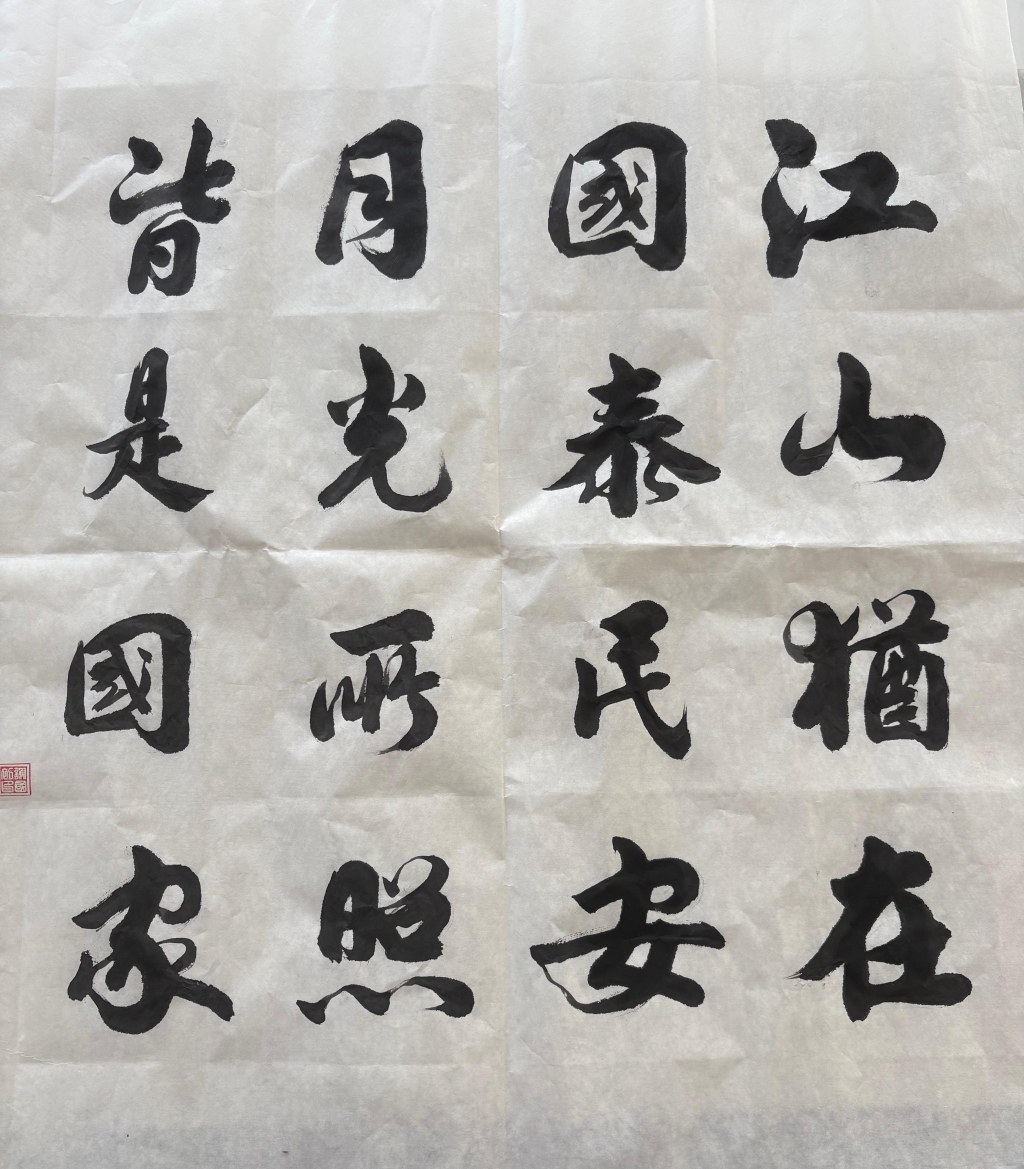 江山猶在
國泰民安
月光所照
皆是國家